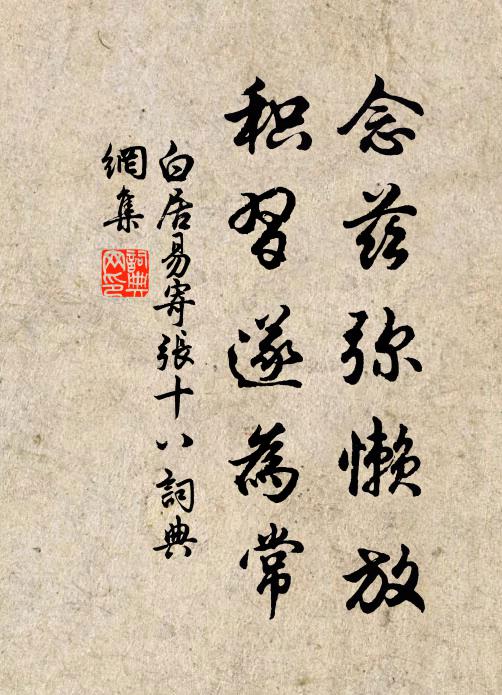 念茲弥懶放
积習遂為常
白居易寄張十八詞典
網集
詞典
网印